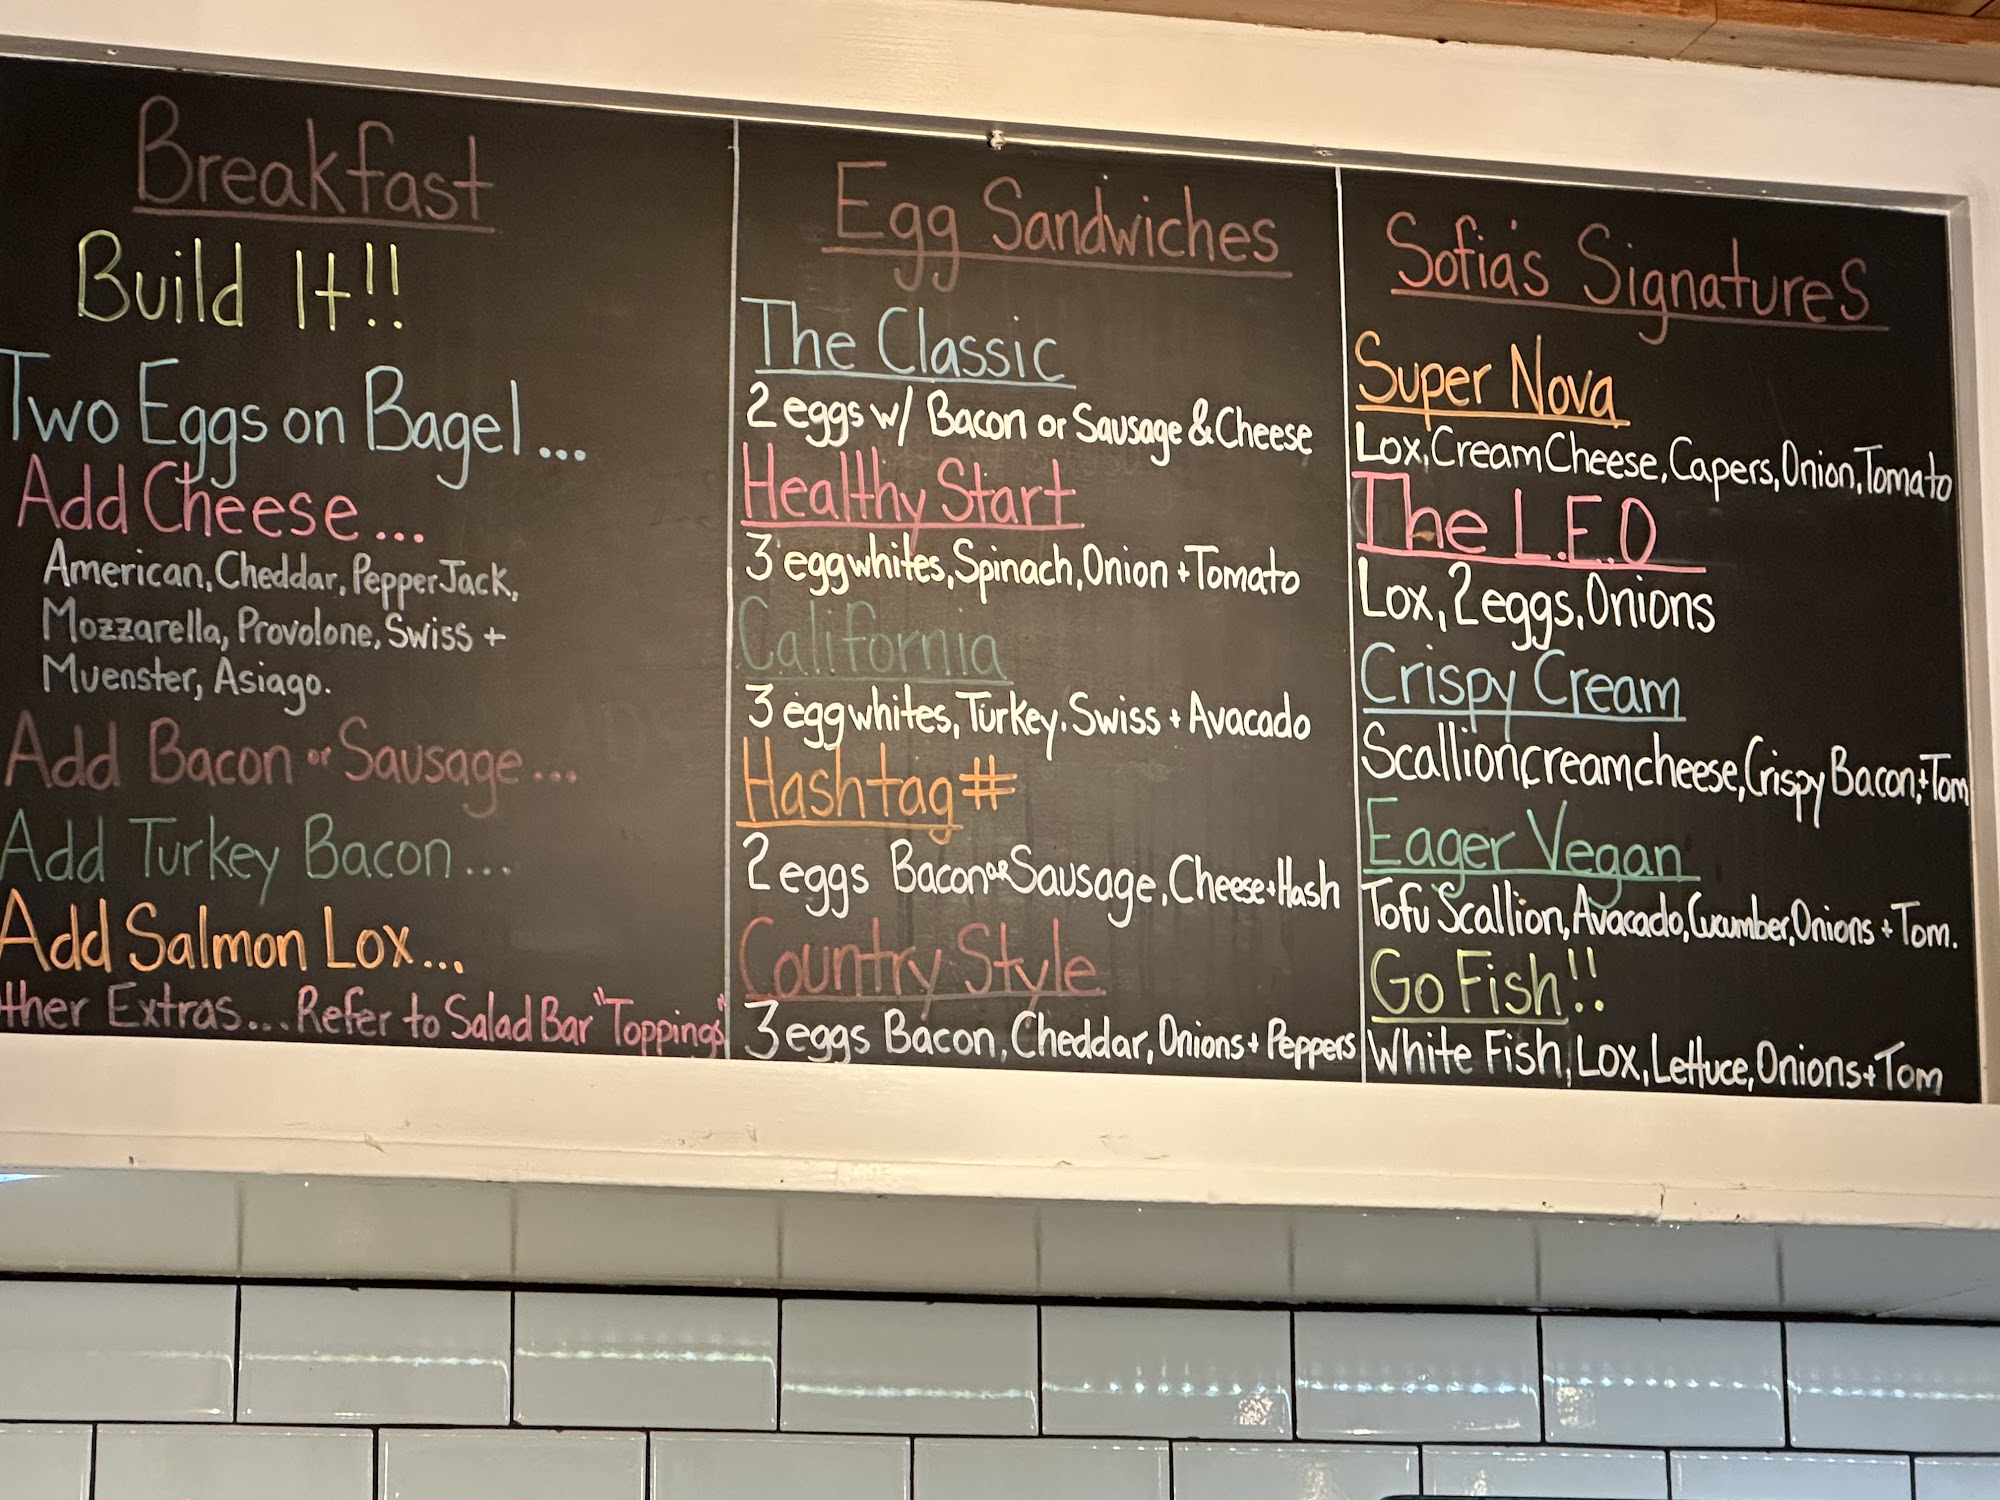 Breakfast
Build It!!
Two Eggs on Bagel...
Add Cheese...
American, Cheddar, Pepper Jack,
Mozzarella, Provolone, Swiss +
Muenster, Asiago.
Add Bacon or Sausage...
Add Turkey Bacon...
Add Salmon Lox...
ther Extras... Refer to Salad Bar "Toppings"
Egg Sandwiches
The Classic
2 eggs w/ Bacon or Sausage & Cheese
Healthy Start
3 egg whites, Spinach, Onion + Tomato
California
3 egg whites, Turkey, Swiss + Avacado
Hashtag #
2 eggs Bacon or Sausage, Cheese + Hash
Country Style
3 eggs Bacon, Cheddar, Onions + Peppers
Sofia's Signatures
Super Nova
Lox, Cream Cheese, Capers, Onion, Tomato
The L.E.O
Lox, 2 eggs, Onions
Crispy Cream
Scallion creamcheese, Crispy Bacon, + Tom
Eager Vegan
Tofu Scallion, Avacado, Cucumber, Onions + Tom.
Go Fish!!
White Fish, Lox, Lettuce, Onions + Tom